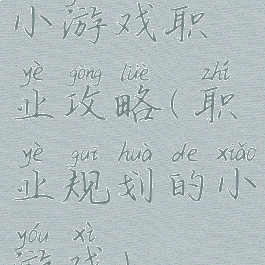 小游戏职
yè gōng lüè zhí
业攻略(职
yè guī huà de xiǎo
业规划的小
yóu xì
游戏)